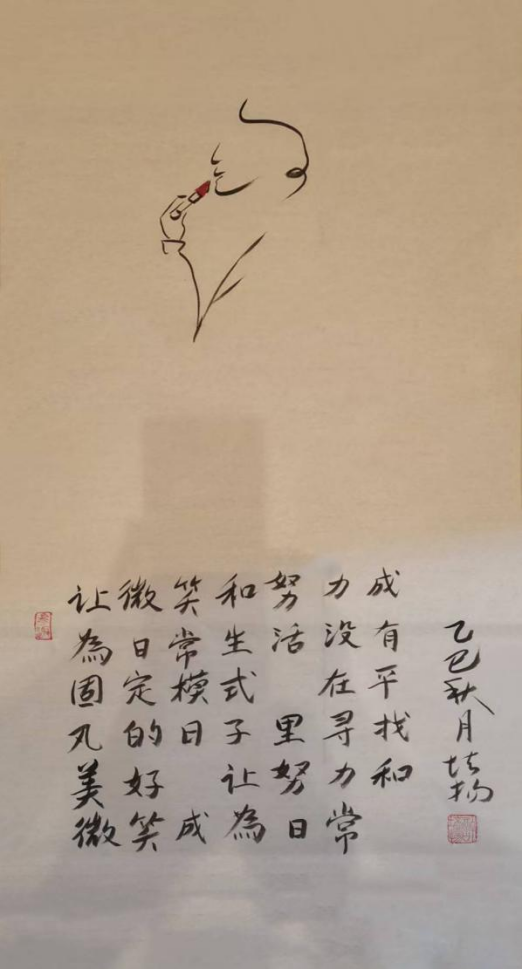 让微笑和努力成
為日常生活没有
固定模式 在平
凡的日子里寻找
美好 让努力和
微笑成為日常
乙巳秋月